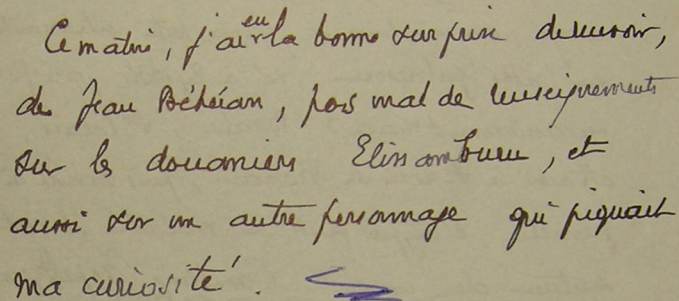 Ce matin, j'ai eu la bonne surprise de recevoir,
de Jean Béhéian, pas mal de renseignements
sur les douaniers Elissamburu, et
aussi sur un autre personnage qui piquait
ma curiosité.